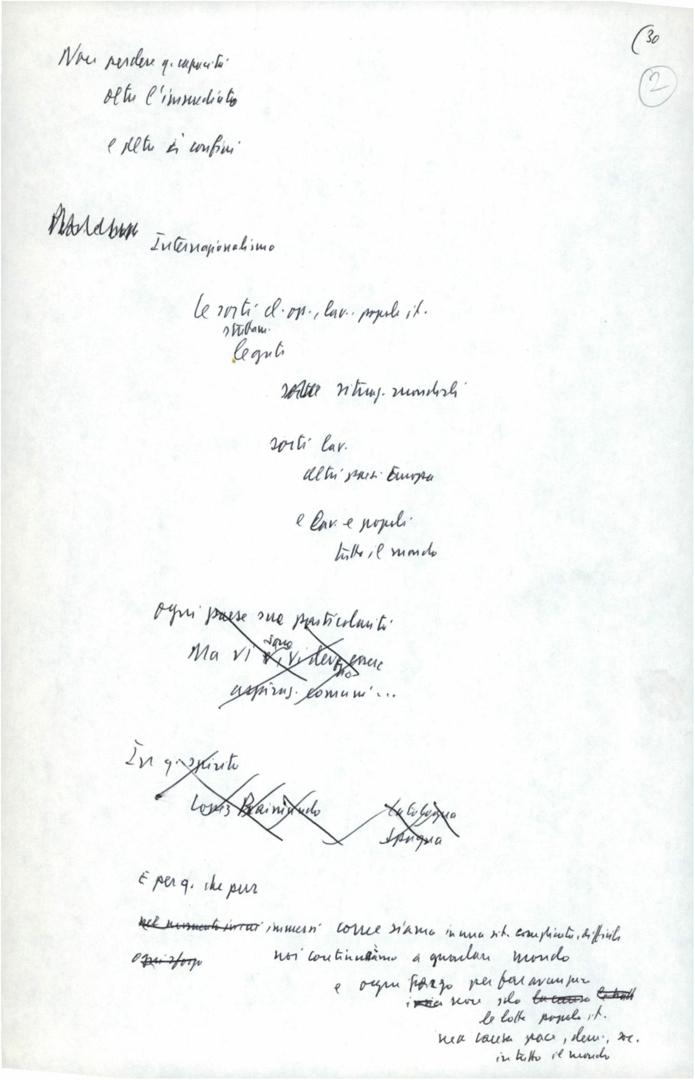 (30
2
Non perdere q. capacità
oltre l'immediato
e oltre i confini
Internazionalismo
Le sorti cl. op., lav., popolo it.
strettam.
legati
situaz. mondiali
sorti lav.
altri paesi Europa
e lav. e popoli
tutto il mondo
Ogni paese sua particolarità
Ma vi sono, vi devono essere
aspiraz. comuni...
In q. spirito
Louis
Catalogna
Spagna
E per q. che pur
immersi come siamo in una sit. complicata, difficile
ogni sforzo noi continuiamo a guardare mondo
e ogni sforzo per far avanzare
non solo la causa
le lotte popolo it.
ma causa pace, dem., soc.
in tutto il mondo